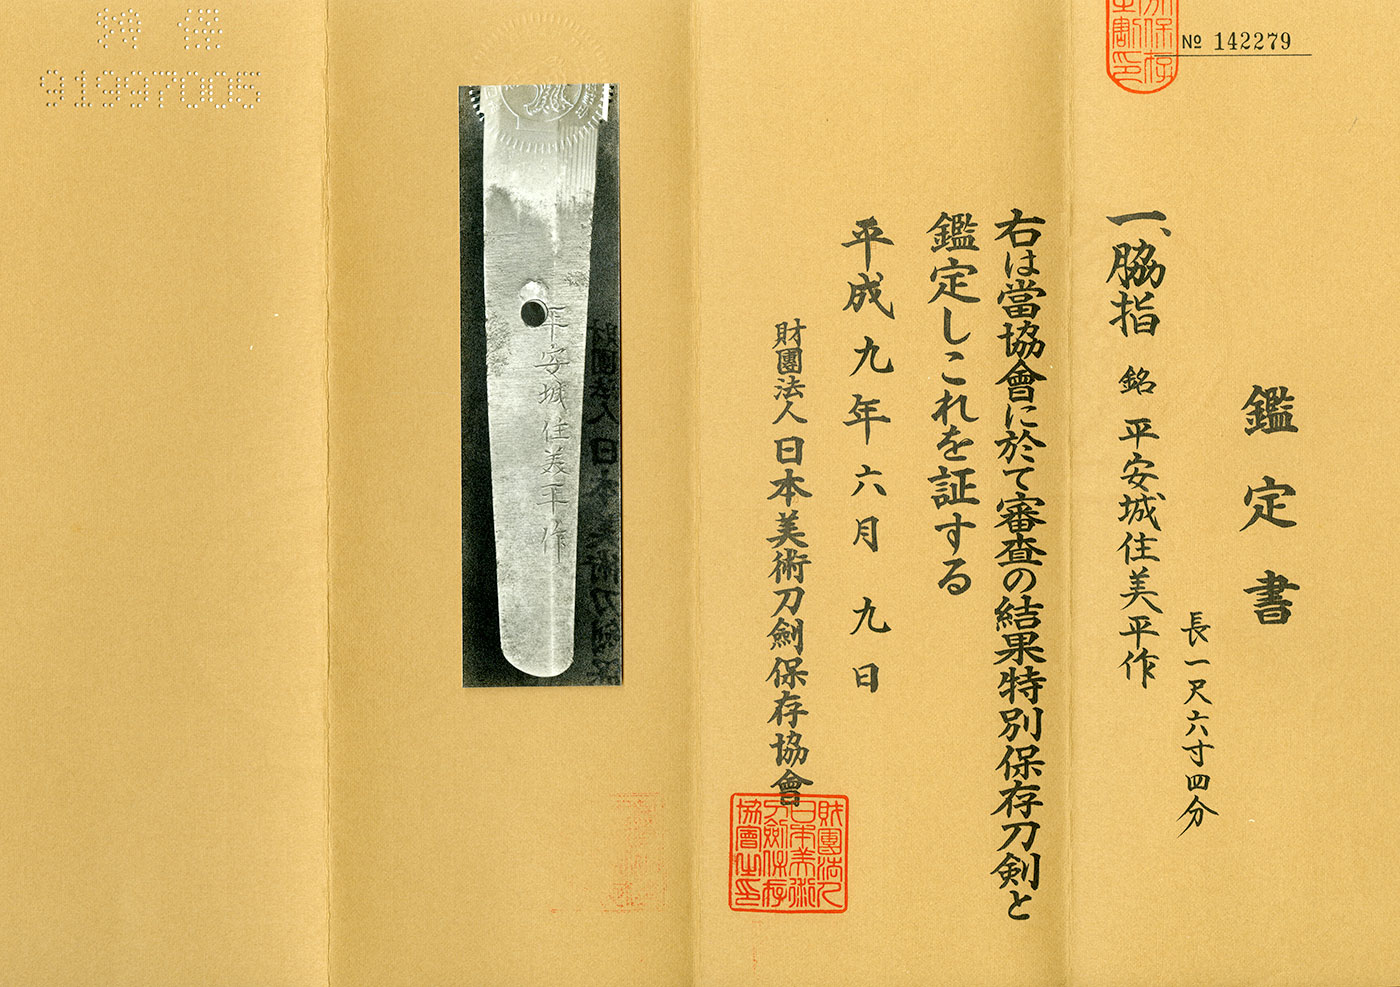 No 142279
鑑定書
一、脇指 銘 平安城住美平作
長一尺六寸四分
右は當協會に於て審査の結果特別保存刀剣と
鑑定しこれを証する
平成九年六月九日
財團法人日本美術刀劍保存協會
財團法人
日本美術
刀劍保存
協會之印
平安城住美平作
特保
91997005